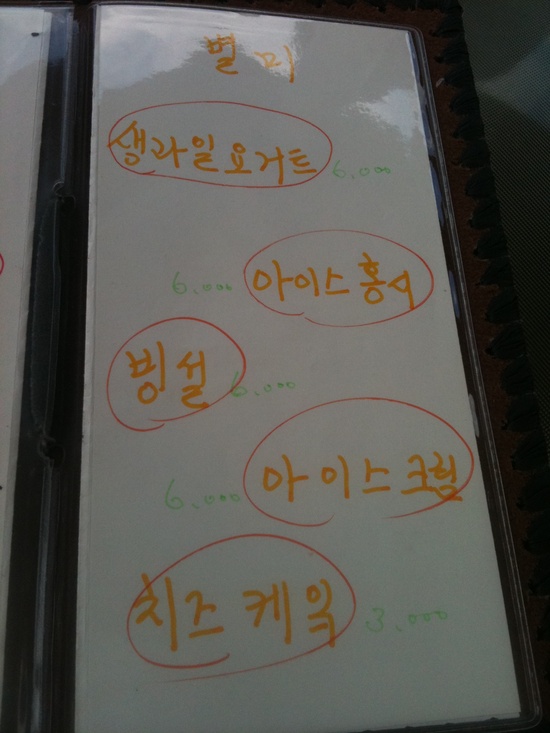 별미
생과일요거트 6.000
6.000 아이스홍시
빙설 6.000
6.000 아이스크림
치즈케익 3.000